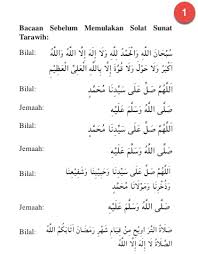 1
Bacaan Sebelum Memulakan Solat Sunat
Tarawih:
Bilal: سُبْحَانَ اللَّهِ وَالْحَمْدُ لِلَّهِ وَلَا إِلَهَ إِلَّا اللَّهُ وَاللَّهُ
أَكْبَرُ وَلَا حَوْلَ وَلَا قُوَّةَ إِلَّا بِاللَّهِ الْعَلِيِّ الْعَظِيْمِ
Bilal: اَللَّهُمَّ صَلِّ عَلَى سَيِّدِنَا مُحَمَّدٍ
Jemaah: صَلَّى اللَّهُ وَسَلَّمَ عَلَيْهِ
Bilal: اَللَّهُمَّ صَلِّ عَلَى سَيِّدِنَا مُحَمَّدٍ
Jemaah: صَلَّى اللَّهُ وَسَلَّمَ عَلَيْهِ
Bilal: اَللَّهُمَّ صَلِّ عَلَى سَيِّدِنَا وَحَبِيْبِنَا وَشَفِيْعِنَا
وَذُخْرِنَا وَمَوْلَانَا مُحَمَّدٍ
Jemaah: صَلَّى اللَّهُ وَسَلَّمَ عَلَيْهِ
Bilal: صَلَاةَ التَّرَاوِيْحِ مِنْ قِيَامِ شَهْرِ رَمَضَانَ أَثَابَكُمُ اللَّهُ
الصَّلَاةُ لَا إِلَهَ إِلَّا اللَّهُ